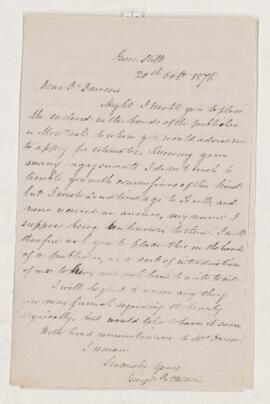 Green Hill
20th Octr 1876
Dear Dr Dawson
Might I trouble you to place
the enclosed in the hands of the publisher
in New York to whom you would advise me
to apply for estimates. Knowing your
many engagements I do not wish to
trouble you with commissions of this kind
but I wrote some time ago to and
never received an answer, my name I
suppose being unknown to them. I will
therefore ask you to place this in the hands
of a publisher, as a sort of introduction
of me to him, and ask him to write to me.
I will be glad to receive any thing
you may furnish regarding the county
physically, but would like to have it soon
With kind remembrances to Mrs Dawson
I remain
Sincerely Yours
George Patterson